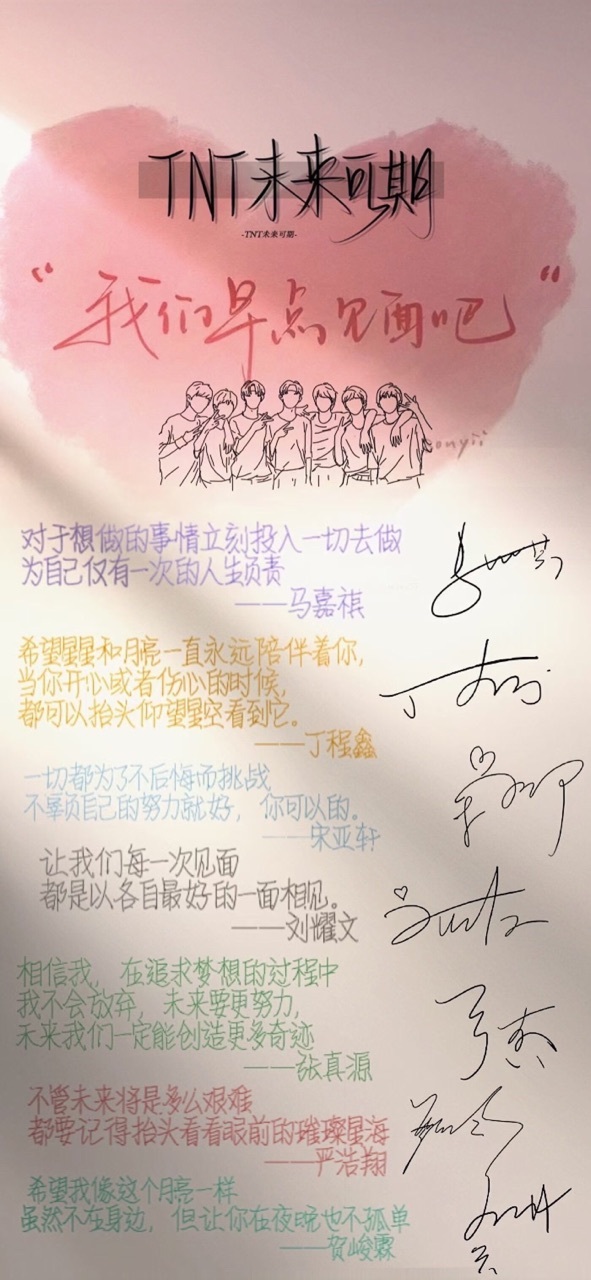 TNT未来可期
-TNT未来可期-
“我们早点见面吧”
onyii
对于想做的事情立刻投入一切去做
为自己仅有一次的人生负责
——马嘉祺
希望星星和月亮一直永远陪伴着你,
当你开心或者伤心的时候,
都可以抬头仰望星空看到它。
——丁程鑫
一切都为了不后悔而挑战
不辜负自己的努力就好，你可以的。
——宋亚轩
让我们每一次见面
都是以各自最好的一面相见。
——刘耀文
相信我，在追求梦想的过程中
我不会放弃，未来要更努力,
未来我们一定能创造更多奇迹
——张真源
不管未来将是多么艰难
都要记得抬头看看眼前的璀璨星海
——严浩翔
希望我像这个月亮一样
虽然不在身边，但让你在夜晚也不孤单
——贺峻霖